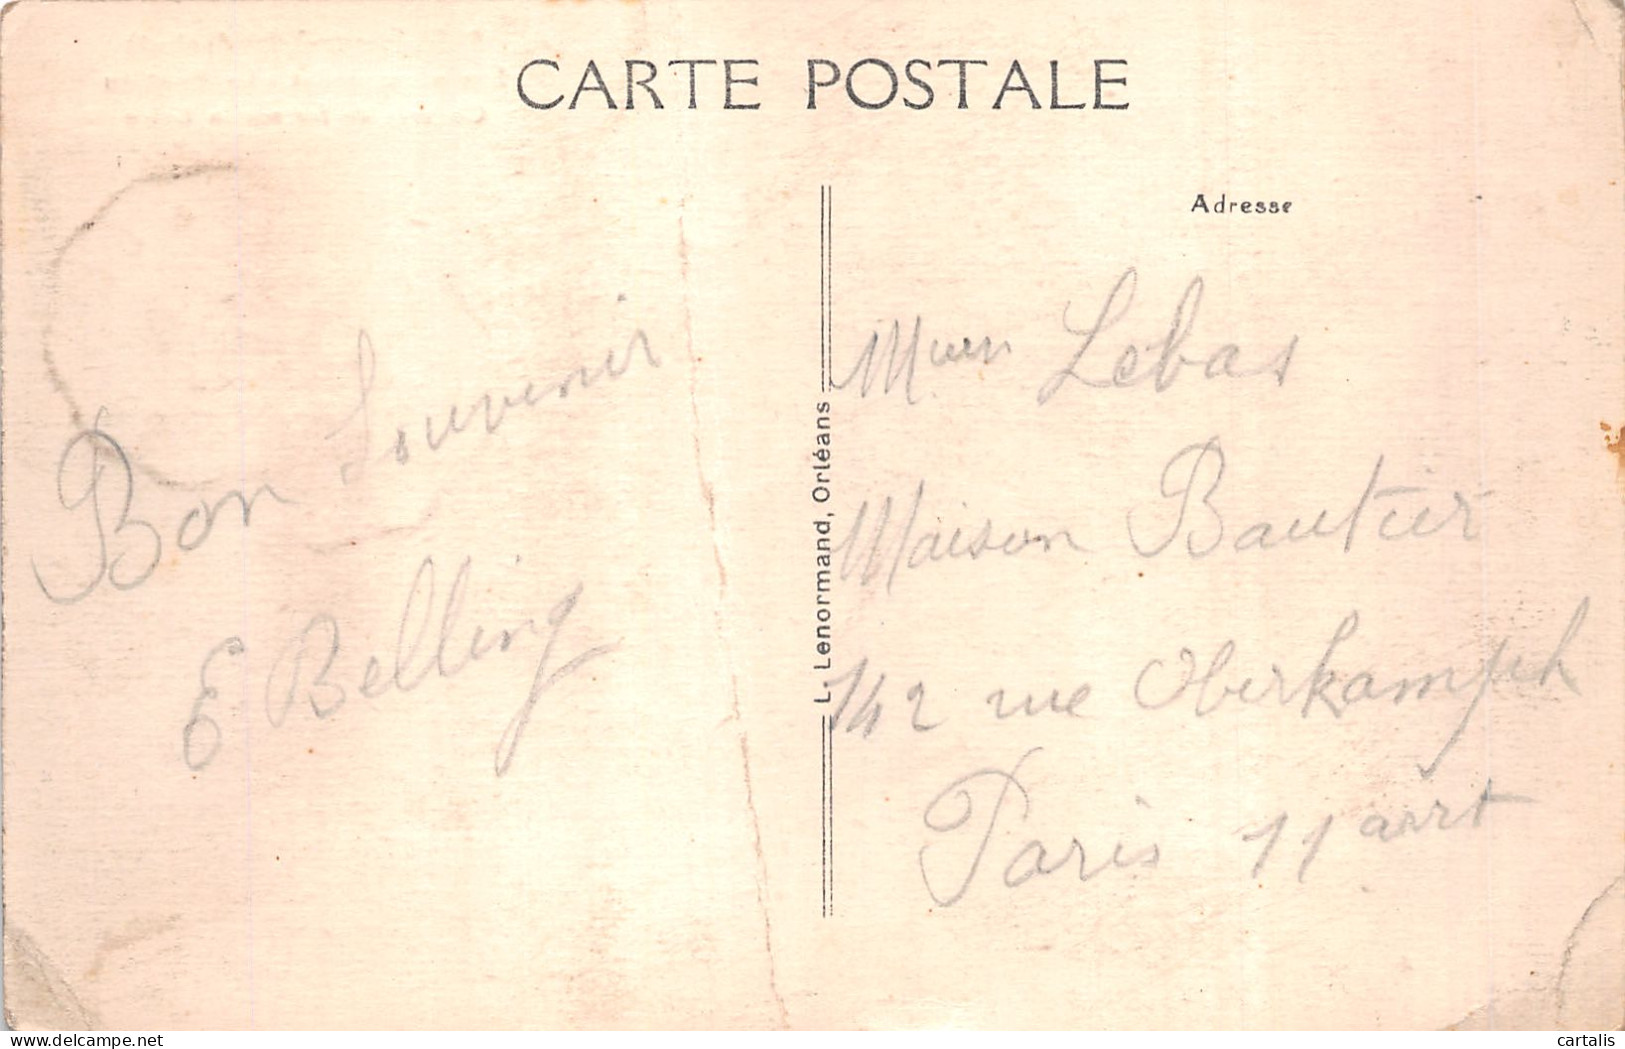 CARTE POSTALE
Adresse
Bon Souvenir
E Belling
L. Lenormand, Orléans
Lebas
Maison Bautier
142 rue Oberkampf
Paris 11 arrt
cartalis